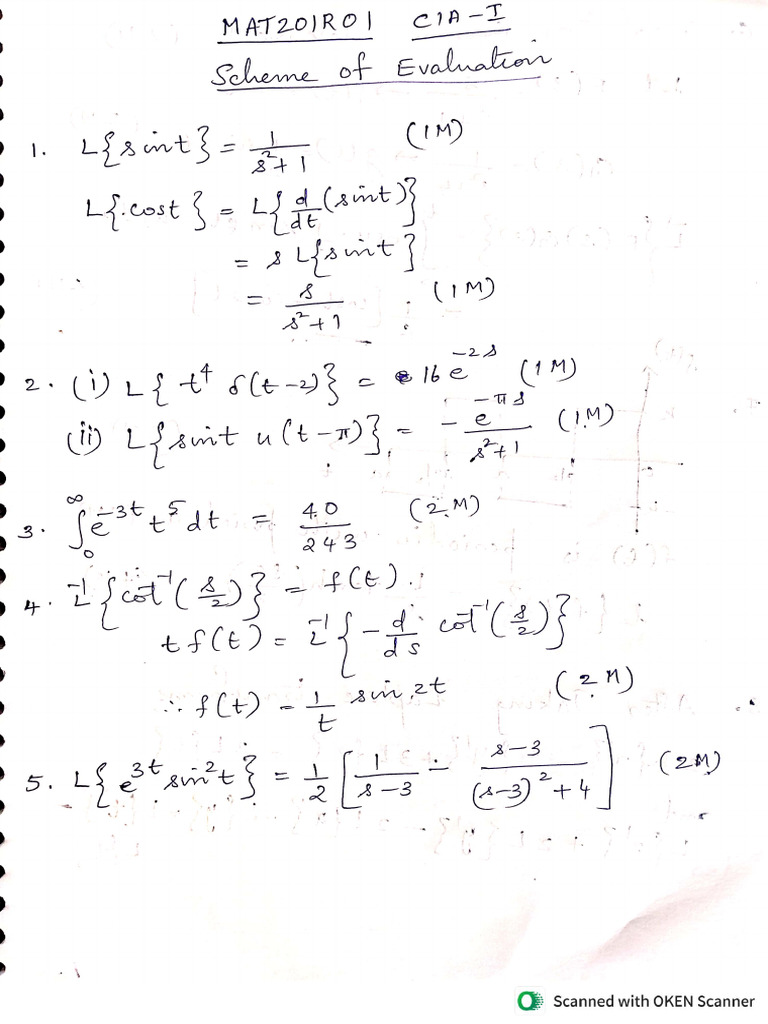 MAT201R01 CIA-I
Scheme of Evaluation
1. L{sint} = 1/(s²+1) (1M)
L{cost} = L{d/dt (sint)}
= s L{sint}
= s/(s²+1) (1M)
2. (i) L{ t⁴ δ(t-2)} = 16 e^(-2s) (1M)
(ii) L{sint u(t-π)} = - e^(-πs)/(s²+1) (1M)
3. ∫₀^∞ e^(-3t) t⁵ dt = 40/243 (2M)
4. L⁻¹{cot⁻¹(s/2)} = f(t).
t f(t) = L⁻¹{- d/ds cot⁻¹(s/2)}
∴ f(t) = 1/t sin 2t (2M)
5. L{e^(3t) sin²t} = 1/2 [1/(s-3) - (s-3)/((s-3)²+4)] (2M)
Scanned with OKEN Scanner